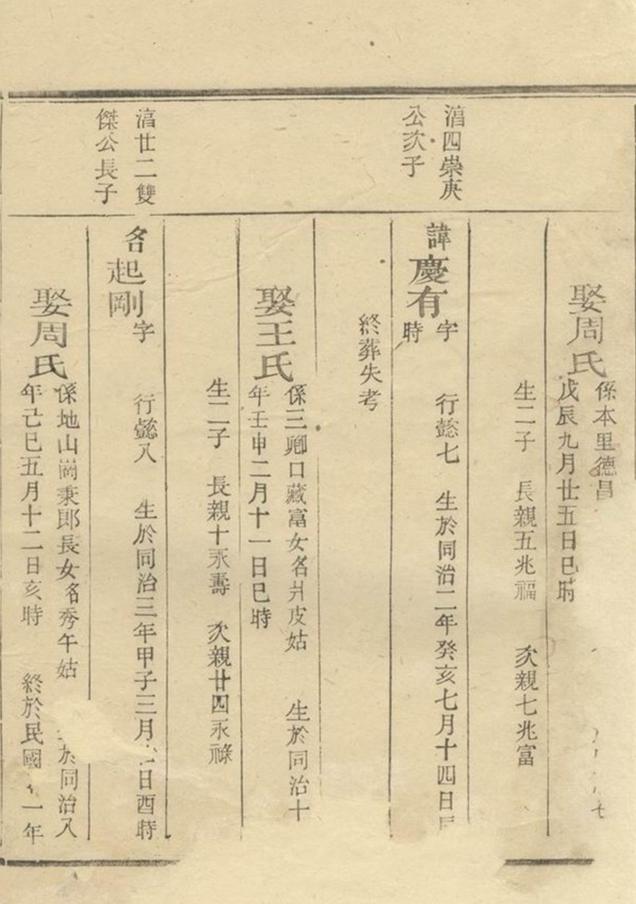 娶周氏
係本里德昌
戊辰九月廿五日巳時
生二子 長親五兆福 次親七兆富
湻四崇庚
公次子
諱慶有
字 行懿七 生於同治二年癸亥七月十四日
時
終葬失考
娶王氏
係三卿口藏富女名 皮姑 生於同治十
年壬申二月十一日巳時
生二子 長親十永壽 次親廿四永祿
湻廿二雙
傑公長子
名起剛
字 行懿八 生於同治三年甲子三月 日酉時
娶周氏
係地山崗秉郎長女名秀午姑 於同治八
年己巳五月十二日亥時 終於民國 一年